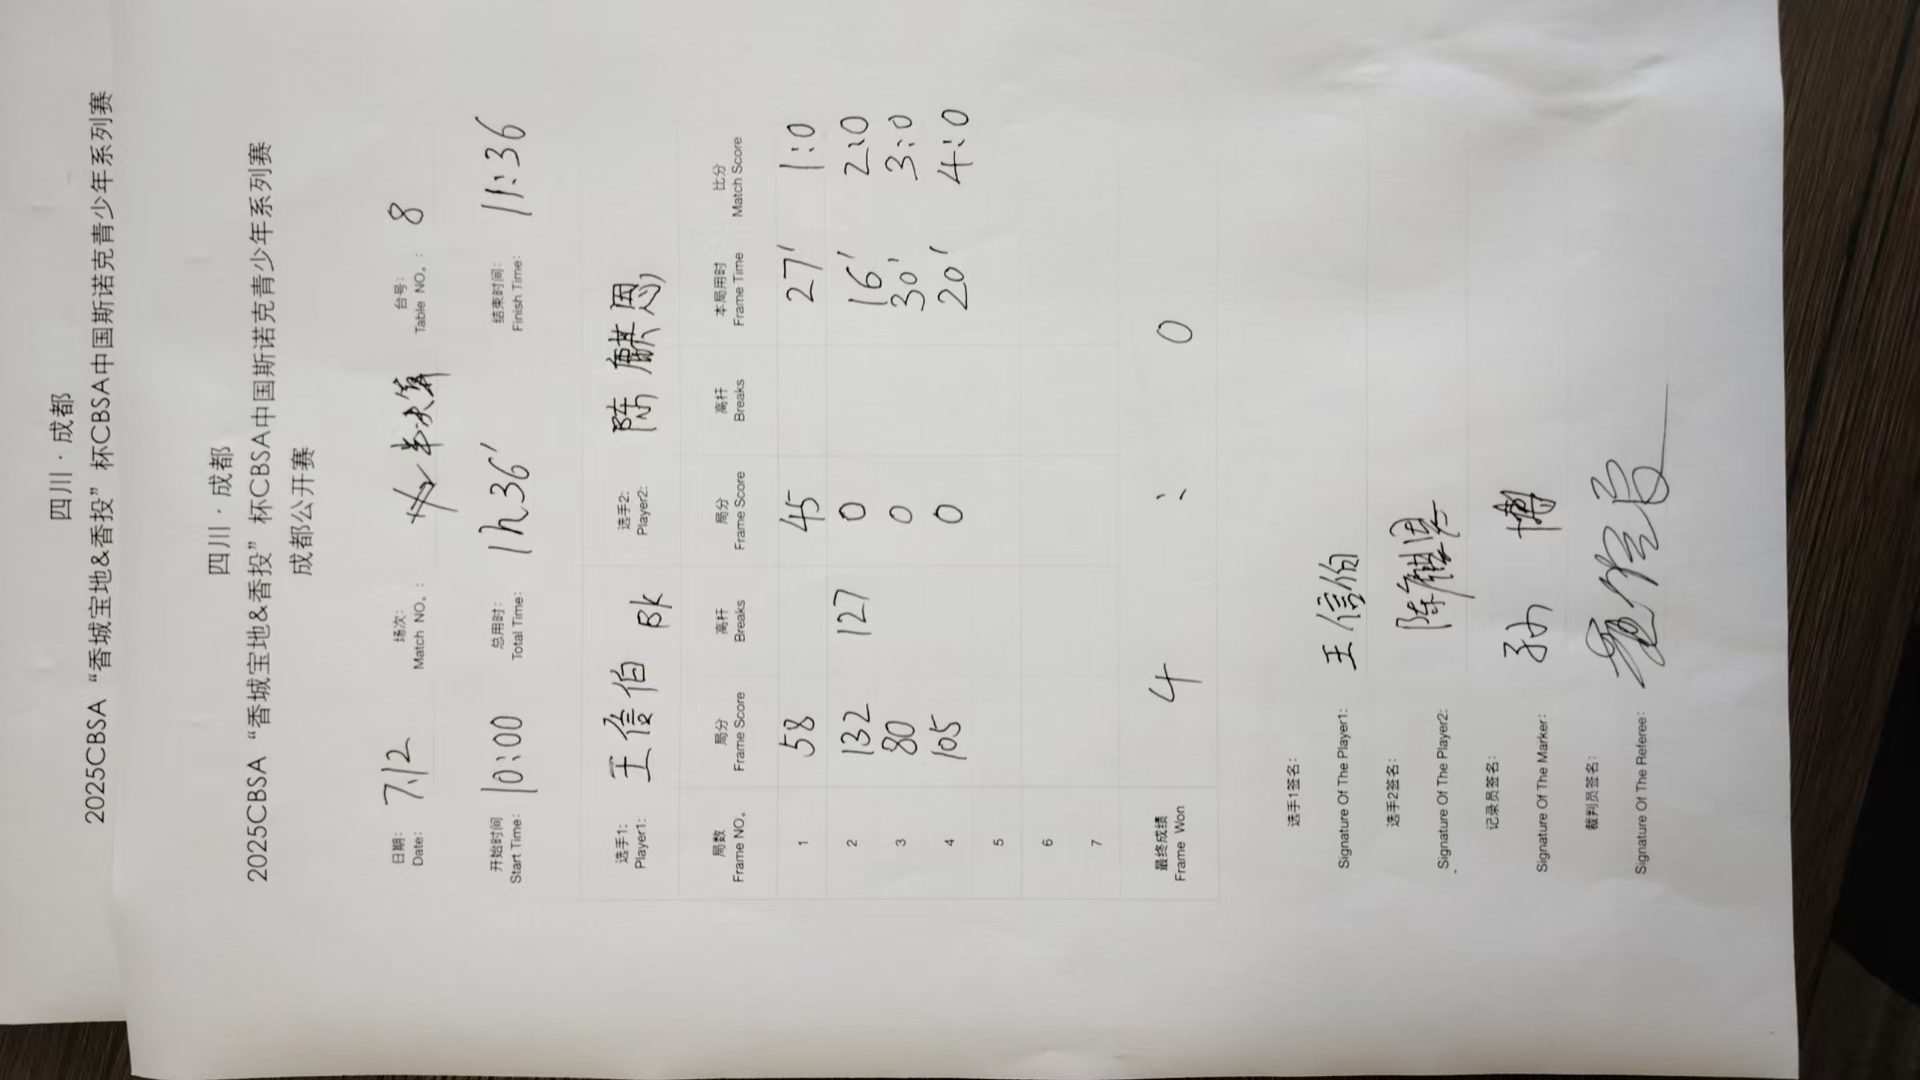 四川·成都
2025CBSA “香城宝地&香投” 杯CBSA中国斯诺克青少年系列赛
四川·成都
2025CBSA “香城宝地&香投” 杯CBSA中国斯诺克青少年系列赛
成都公开赛
日期: 7.12 场次: 半决赛 台号: 8
Date: Match NO.: Table NO.:
开始时间 10:00 总用时: 1h36' 结束时间: 11:36
Start Time: Total Time: Finish Time:
选手1: 王信伯 BK 选手2: 陈麒恩
Player1: Player2:
局数 局分 高杆 局分 高杆 本局用时 比分
Frame NO。 Frame Score Breaks Frame Score Breaks Frame Time Match Score
1 58 45 27' 1:0
2 132 127 0 16' 2:0
3 80 0 30' 3:0
4 105 0 20' 4:0
5
6
7
最终成绩 4 : 0
Frame Won
选手1签名:
Signature Of The Player1: 王信伯
选手2签名:
Signature Of The Player2: 陈麒恩
记录员签名:
Signature Of The Marker: 孙博
裁判员签名:
Signature Of The Referee: